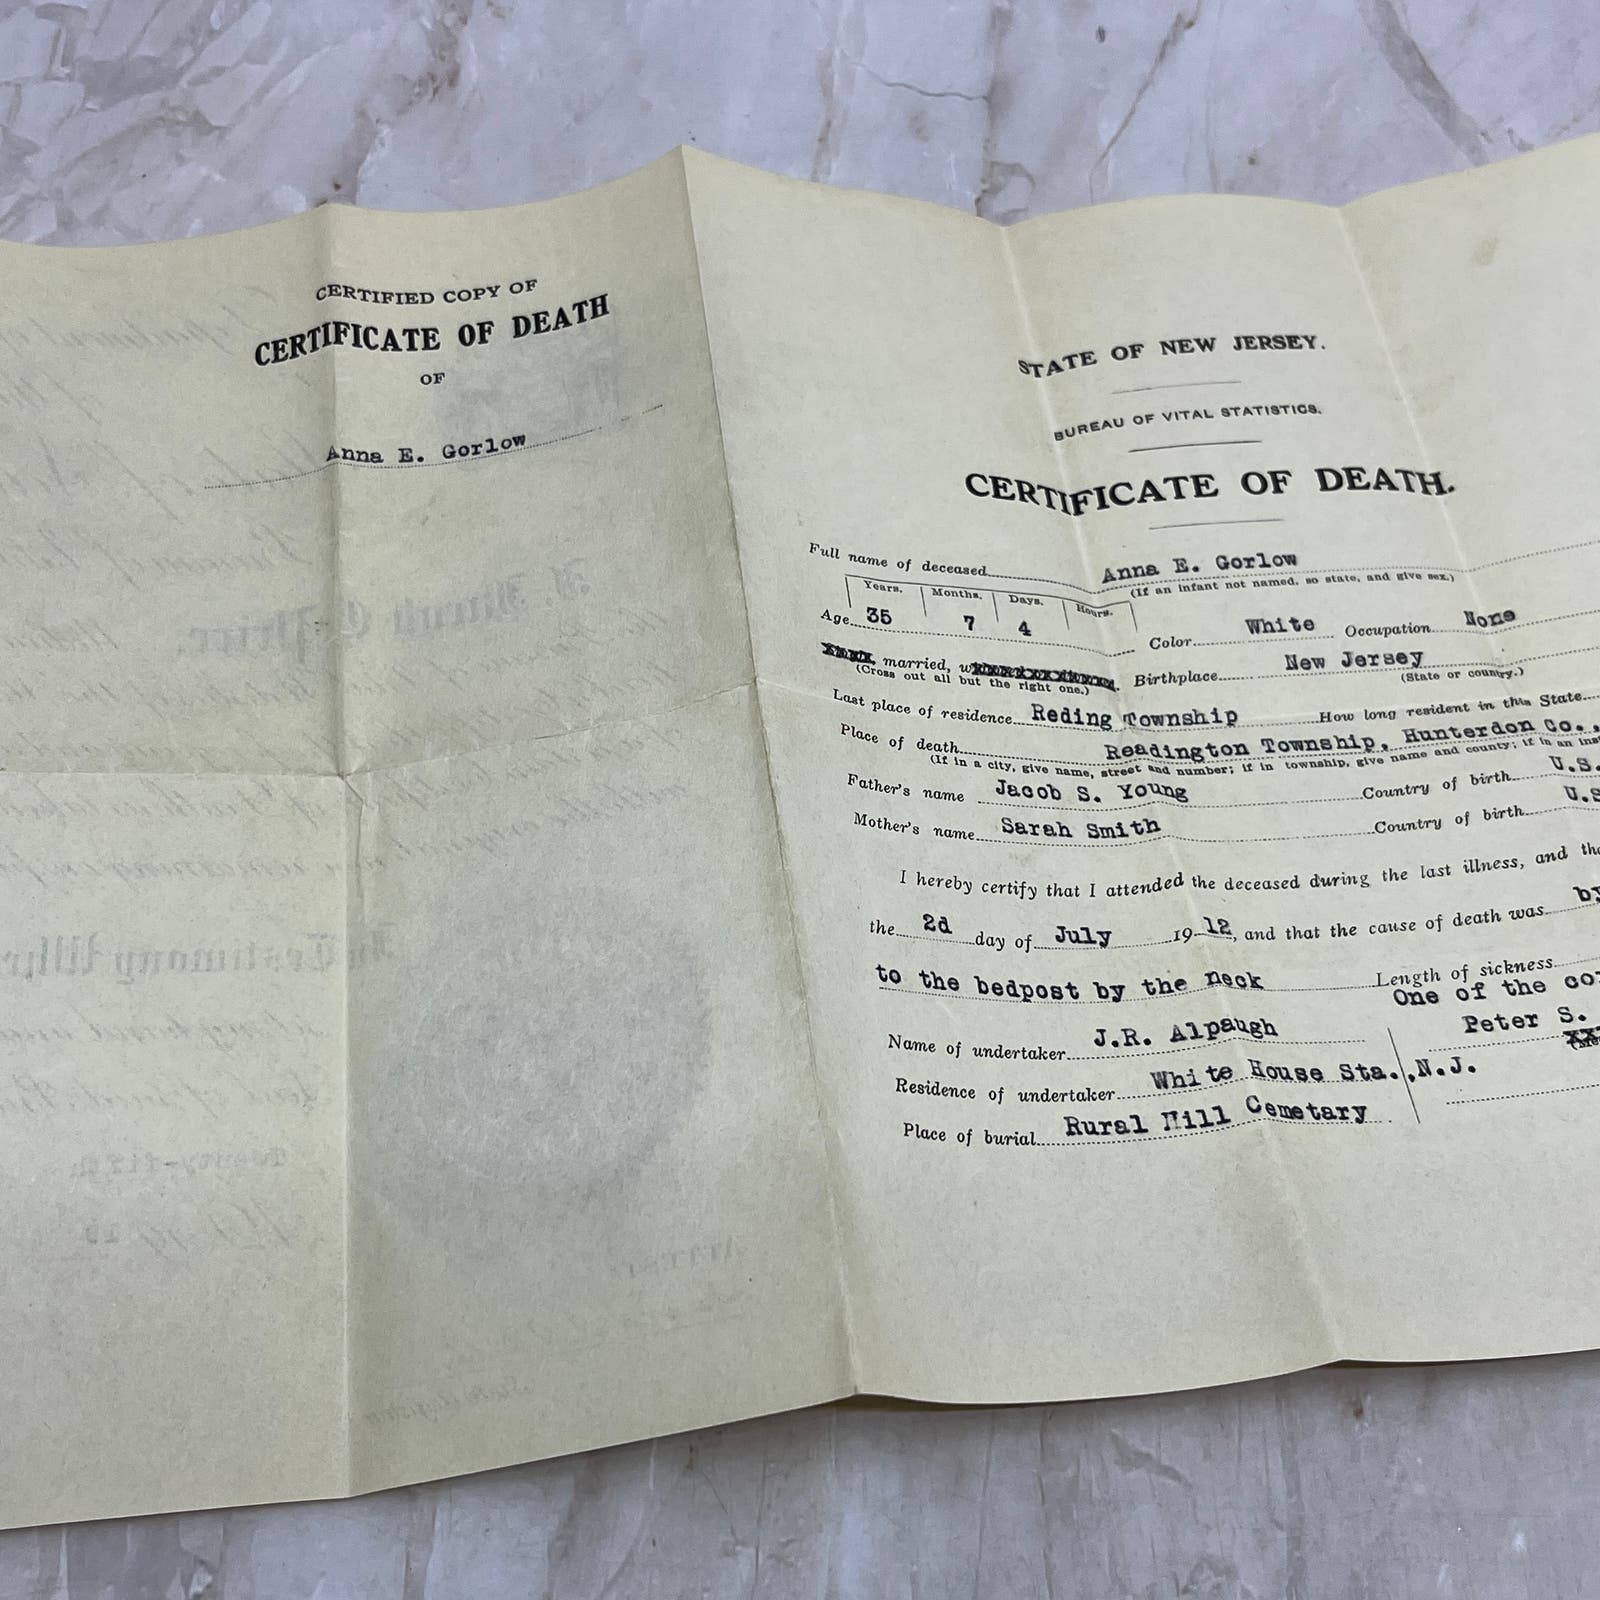 CERTIFIED COPY OF
CERTIFICATE OF DEATH
OF
Anna E. Gorlow
STATE OF NEW JERSEY.
BUREAU OF VITAL STATISTICS.
CERTIFICATE OF DEATH.
Full name of deceased Anna E. Gorlow
(If an infant not named, so state, and give sex.)
Years. Months. Days. Hours.
Age 35 7 4 Color White Occupation None
married, w Birthplace New Jersey
(Cross out all but the right one.) (State or country.)
Last place of residence Reding Township How long resident in this State
Place of death Readington Township, Hunterdon Co.,
(If in a city, give name, street and number; if in township, give name and county; if in an
Father's name Jacob S. Young Country of birth U.S.
Mother's name Sarah Smith Country of birth U.S
I hereby certify that I attended the deceased during the last illness, and
the 2d day of July 1912, and that the cause of death was by
to the bedpost by the neck Length of sickness
One of the
Name of undertaker J.R. Alpaugh Peter S.
Residence of undertaker White House Sta., N.J.
Place of burial Rural Hill Cemetary